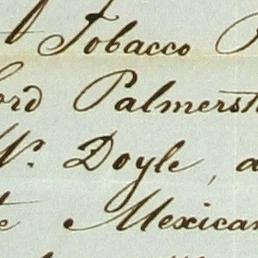 Tobacco
ord Palmerst
Mr. Doyle, a
te Mexican